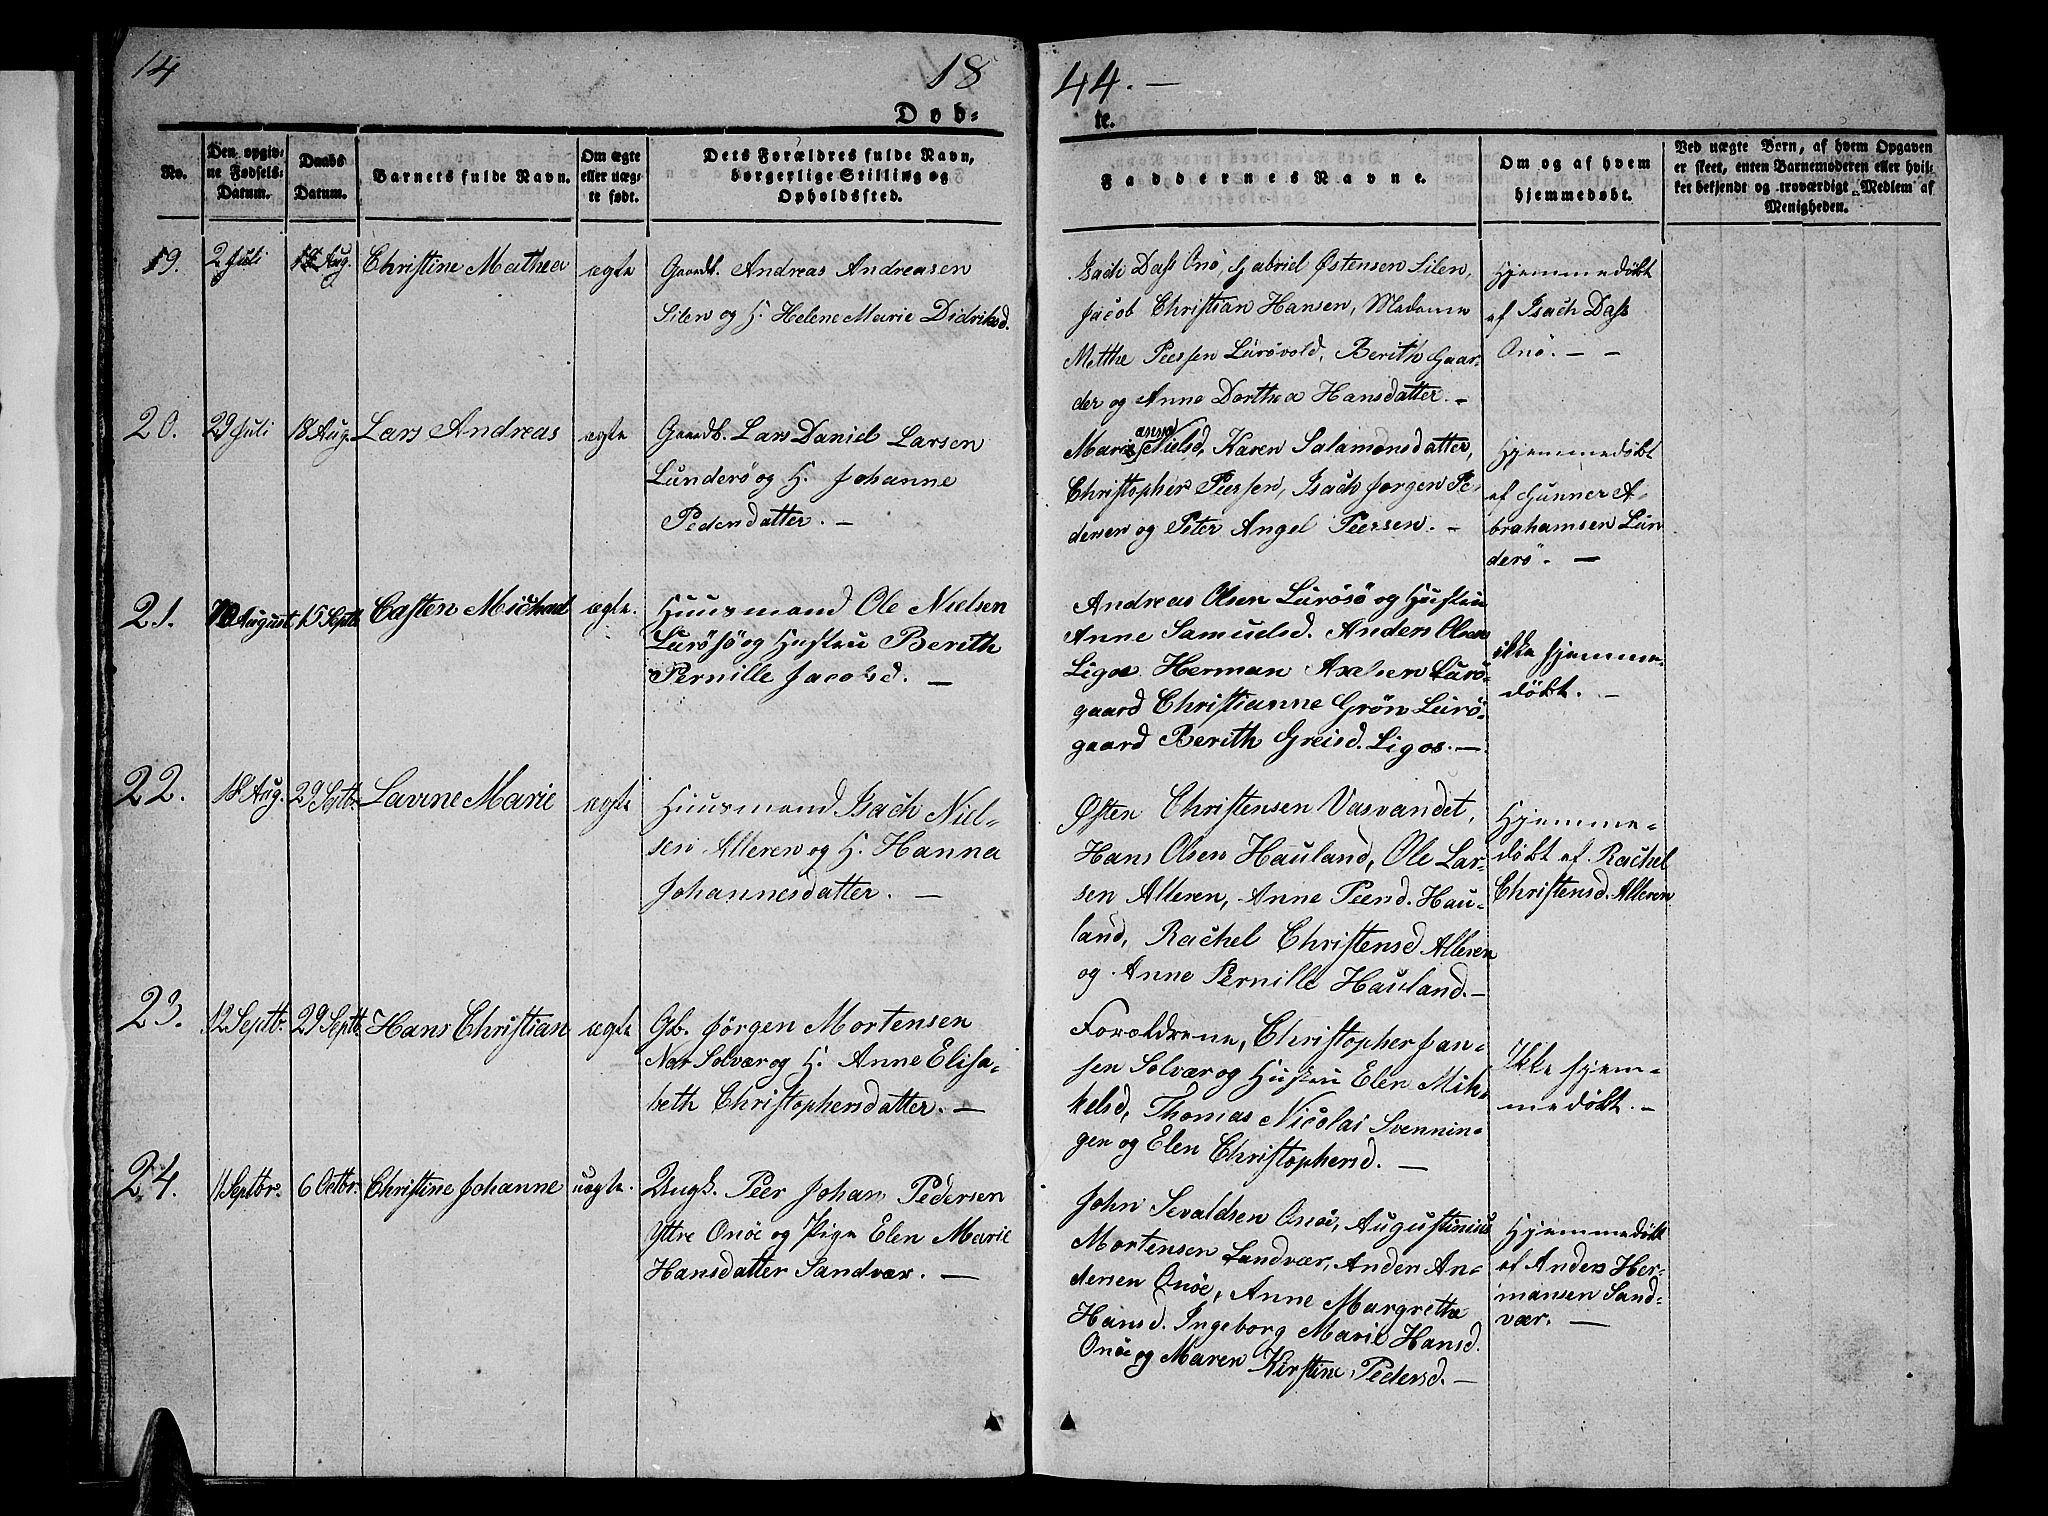 14
18
44. —
Døb-
te.
No.
Den opgiv-
ne Fødsels-
Datum.
Daabs
Datum.
Barnets fulde Navn.
Om ægte
eller uæg-
te født.
Dets Forældres fulde Navn,
borgerlige Stilling og
Opholdssted.
Faddernes Navne.
Om og af hvem
hjemmedøbt.
Ved uægte Børn, af hvem Opgaven
er skeet, enten Barnemoderen eller hvil-
ket bekjendt og troværdigt Medlem af
Menigheden.
19.
2 Juli
Aug.
Christine Mathea
ægte
Gaardb. Andreas Andreasen
Silen og H. Helene Marie Didriksd.
Isach Dass Onö, Gabriel Østensen Silen,
Jacob Christian Hansen, Madame
Metthe Peersen Lurövold, Berith Gaar-
der og Anne Dorthea Hansdatter. -
Hjemmedöbt
af Isach Dass
Onö. — —
20.
29 Juli
18 Aug.
Lars Andreas
ægte
Gaardb. Lars Daniel Larsen
Lunderö og H. Johanne
Pedersdatter. —
anna
Marie Nielsd, Karen Salamonsdatter,
Christopher Peersen, Isach Jörgen Pe-
dersen og Peter Angel Peersen. -
Hjemmedöbt
af Gunner A-
brahamsen Lun
derö. —
21.
August
15 Septb
Casten Michael
ægte.
Huusmand Ole Nielsen
Lurösö og Hustru Berith
Pernille Jacobsd. —
Andreas Olsen Lurösö og Hustru
Anne Samuelsd. Anders Olsen
Ligos Herman Axelsen Lurö-
gaard Christianne Grön Lurö-
gaard Berith Greisd. Ligos. —
ikke hjemme-
döbt. -
22.
18 Aug.
29 Septbr.
Lavine Marie
ægte
Huusmand Isach Niel-
sen Alleren og H. Hanna
Johannesdatter. —
Østen Christensen Vasvandet,
Hans Olsen Hauland, Ole Lar-
sen Alleren, Anne Peersd. Hau-
land, Rachel Christensd Alleren
og Anne Pernille Hauland. —
Hjemme-
döbt af Rachel
Christensd. Alleren
23.
12 Septbr.
29 Septb.
Hans Christian
ægte
Gb. Jörgen Mortensen
Nar Solvær og H. Anne Elisa-
beth Christophersdatter. —
Forældrene, Christopher Jan-
sen Solvær og Hustru Elen Mik-
kelsd, Thomas Nicolai Svennin-
gen og Elen Christophersd. —
Ikke hjem-
medöbt. -
24.
11 Septbr.
6 Octbr.
Christine Johanne
uægte.
Ungk. Peer Johan Pedersen
Yttre Onöe og Pige Elen Marie
Hansdatter Sandvær. —
John Sevaldsen Onöe, Augustinius
Mortensen Sandvær, Anders An-
dersen Onöe, Anne Margrethe
Hansd. Ingeborg Marie Hansd.
Onöe og Maren Kirstine Pedersd. —
Hjemmedöbt
af Anders Her-
mansen Sand-
vær. —